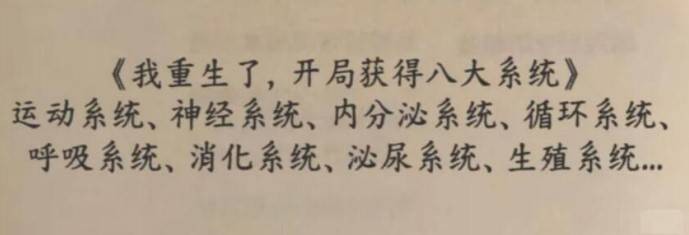 《我重生了，开局获得八大系统》
运动系统、神经系统、内分泌系统、循环系统、
呼吸系统、消化系统、泌尿系统、生殖系统...